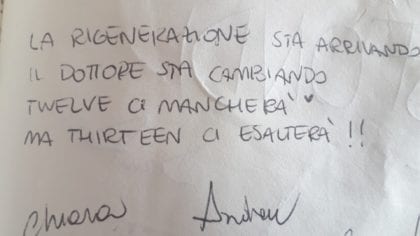 LA RIGENERAZIONE STA ARRIVANDO
IL DOTTORE STA CAMBIANDO
TWELVE CI MANCHERÀ ♥
MA THIRTEEN CI ESALTERÀ !!
Chiara Andrew